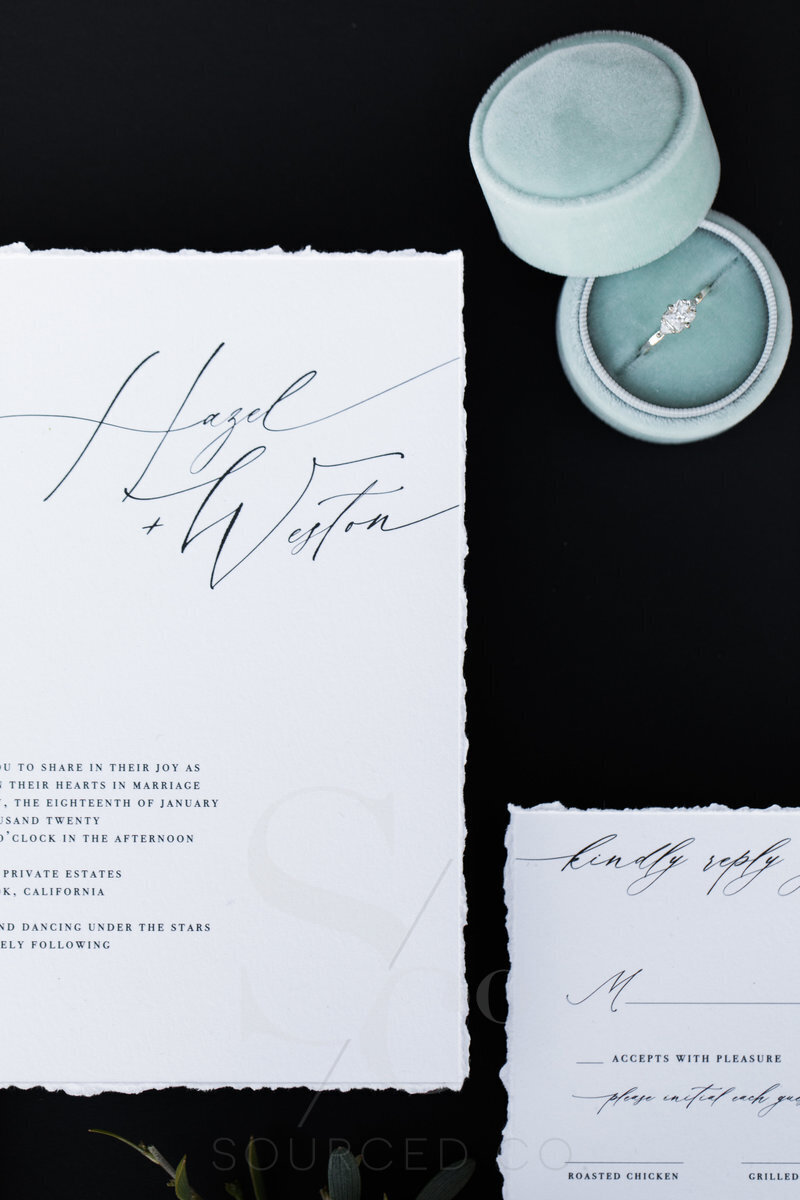 Hazel
+ Weston
OU TO SHARE IN THEIR JOY AS
N THEIR HEARTS IN MARRIAGE
Y, THE EIGHTEENTH OF JANUARY
USAND TWENTY
O'CLOCK IN THE AFTERNOON
PRIVATE ESTATES
OK, CALIFORNIA
ND DANCING UNDER THE STARS
ELY FOLLOWING
kindly reply
M
ACCEPTS WITH PLEASURE
please initial each gue
ROASTED CHICKEN
GRILLED
S/co
SOURCED CO.